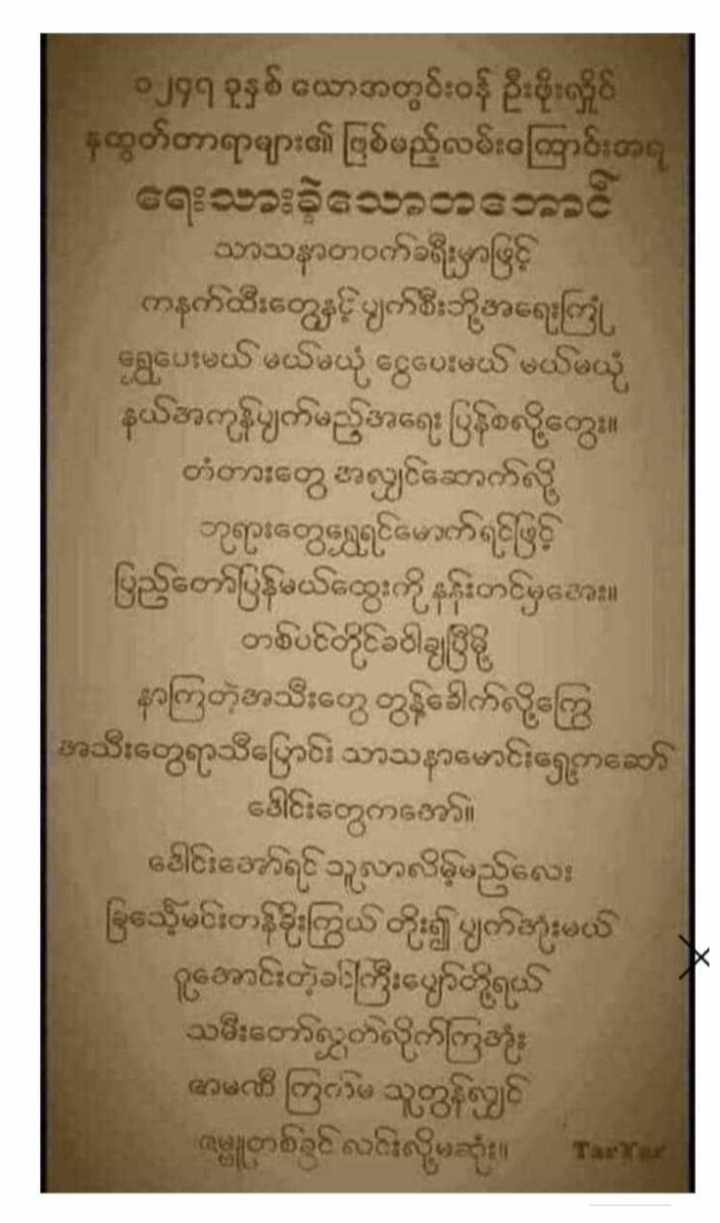 ၁၂၄၇ ခုနှစ် ယောအတွင်းဝန် ဦးဖိုးလှိုင်
နက္ခတ်တာရာများ၏ ဖြစ်မည့်လမ်းကြောင်းအရ
ရေးသားခဲ့သောတဘောင်
သာသနာတဝက်ခရီးမှာဖြင့်
ကနက်ထီးတွေနှင့် ပျက်စီးဘို့အရေးကြုံ
ရွှေပေးမယ် မယ်မယုံ ငွေပေးမယ် မယ်မယုံ
နယ်အကုန်ပျက်မည့်အရေး ပြန်စလို့တွေး။
တံတားတွေ အလျှင်ဆောက်လို့
ဘုရားတွေရွှေရင်မောက်ရင်ဖြင့်
ပြည်တော်ပြန်မယ်ထွေးကို နန်းတင်မှအေး။
တစ်ပင်တိုင်ခဝါချပြီမို့
နာကြတဲ့အသီးတွေ တွန့်ခေါက်လို့ကြွေ
အသီးတွေရာသီပြောင်း သာသနာမောင်းရှေ့ကဆော်
ဒေါင်းတွေကအော်။
ဒေါင်းအော်ရင် သူလာလိမ့်မည်လေး
ခြင်္သေ့မင်းတန်ခိုးကြွယ် တိုး၍ ပျက်အုံးမယ်
ဂူအောင်းတဲ့ခင်ကြီးပျော်တို့ရယ်
သမီးတော်လွှတ်လိုက်ကြအုံး
ဇာမဏီ ကြက်မ သူတွန်လျှင်
ဇမ္ဗူတစ်ခွင် လင်းလို့မဆုံး။
TarYar